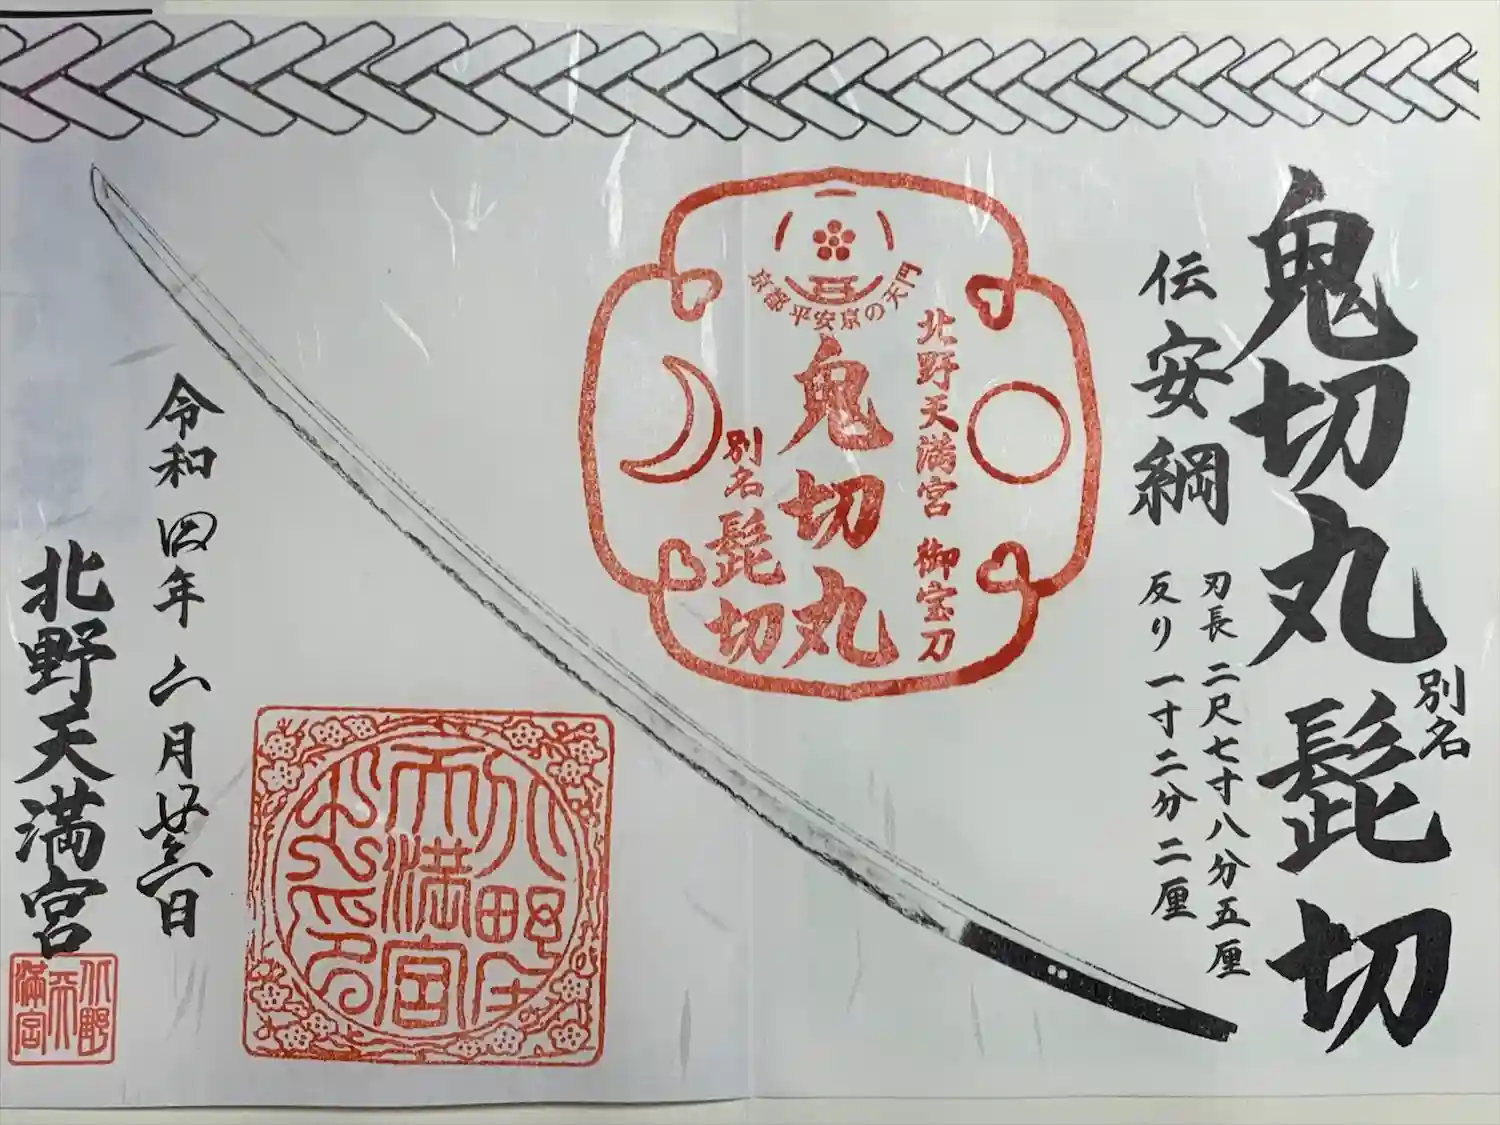 鬼切丸 別名 髭切
伝 安綱
刃長 二尺七寸八分五厘
反り 一寸二分二厘
京都 平安京の天門
北野天満宮 御宝刀
鬼切丸
別名 髭切
北野天満宮
令和四年 二月 廿三日
北野天満宮
北野天満宮